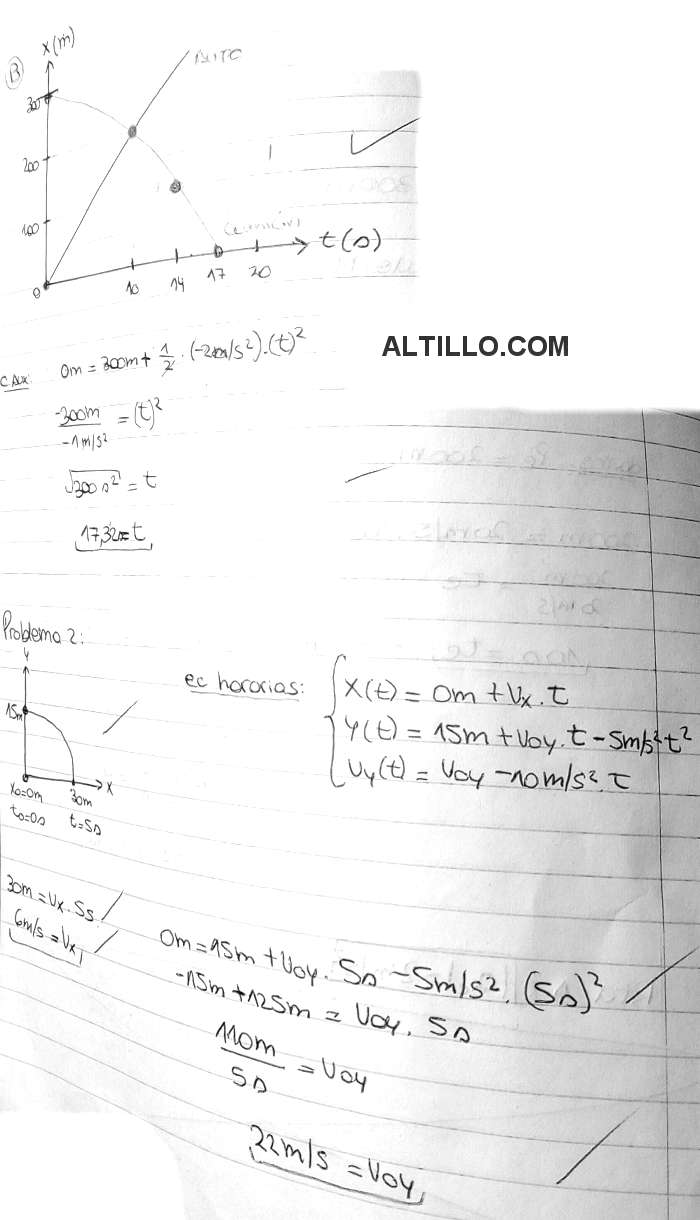 X(m)
B
AUTO
300
200
100
0
10 14 17 20
t(s)
ALTILLO.COM
C AUX: 0m = 300m + 1/2 . (-2m/s²).(t)²
-300m/-1m/s² = (t)²
√300s² = t
17,32s = t
Problema 2:
Y
15m
X
X₀=0m 30m
t₀=0s t=5s
ec horarias:
X(t) = 0m + Vx . t
Y(t) = 15m + Voy . t - 5m/s² t²
Vy(t) = Voy - 10m/s² . t
30m = Vx . 5s
6m/s = Vx
0m = 15m + Voy . 5s - 5m/s² . (5s)²
-15m + 125m = Voy . 5s
110m/5s = Voy
22m/s = Voy